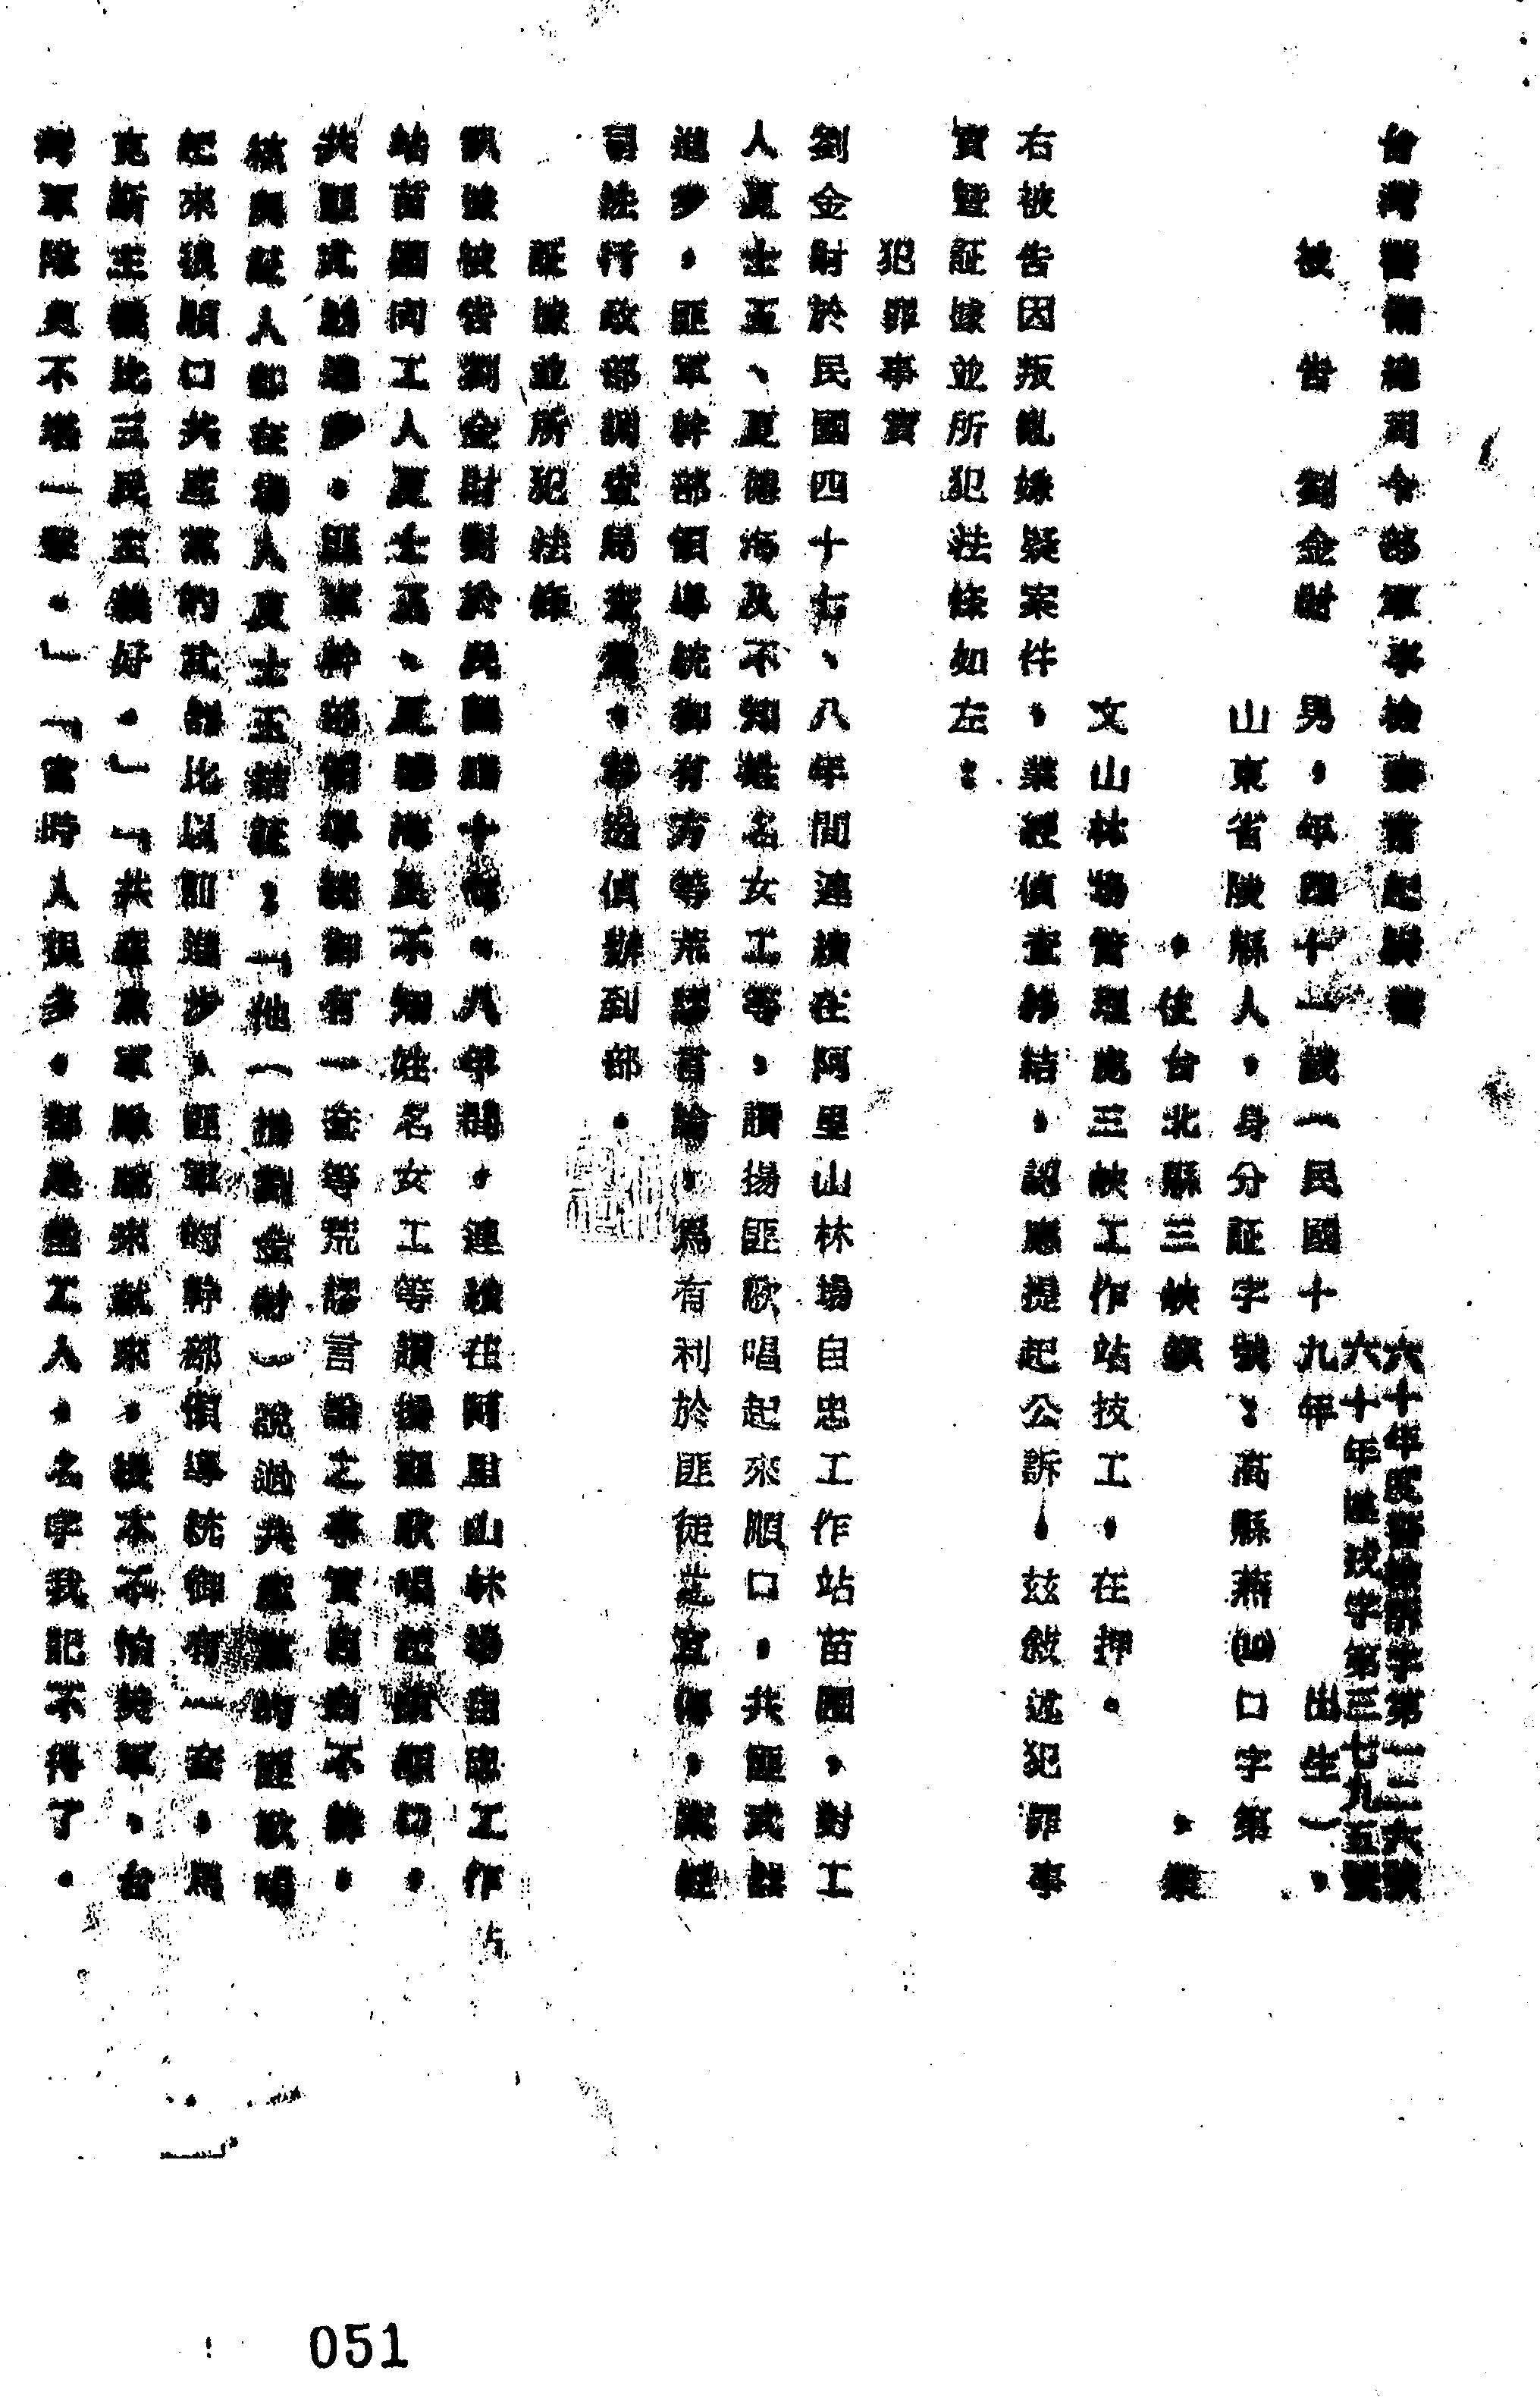 台灣警備總司令部軍事檢察官起訴書
六十年度警檢訴字第一二六號
六十年進戒字第三七九五號
被告 劉金財 男，年四十一歲（民國十九年 出生），
山東省陵縣人，身分証字號：高縣燕(10)口字第
，住台北縣三峽鎮 ，業
文山林場管理處三峽工作站技工，在押。
右被告因叛亂嫌疑案件，業經偵查終結，認應提起公訴，茲敘述犯罪事
實暨証據並所犯法條如左：
犯罪事實
劉金財於民國四十七、八年間連續在阿里山林場自忠工作站苗圃，對工
人夏士玉、夏德海及不知姓名女工等，讚揚匪歌唱起來順口，共匪武器
進步，匪軍幹部領導統御有方等荒謬言論，爲有利於匪徒之宣傳，案經
司法行政部調查局查獲，移送偵辦到部。
証據並所犯法條
訊據被告劉金財對於民國四十七、八年間，連續在阿里山林場自忠工作站
站苗圃向工人夏士玉、夏德海及不知姓名女工等讚揚匪歌唱起來順口，
共匪武器進步，匪軍幹部領導統御有一套等荒謬言論之事實自白不諱，
核與証人即在場人夏士玉結証：「他（指劉金財）說過共產黨的匪歌唱
起來很順口共產黨的武器比以前進步、匪軍的幹部領導統御有一套，馬
克斯主義比三民主義好。」「共產黨軍隊說來就來，根本不怕美軍，台
灣軍隊眞不堪一擊。」「當時人很多，都是些工人，名字我記不得了。
051